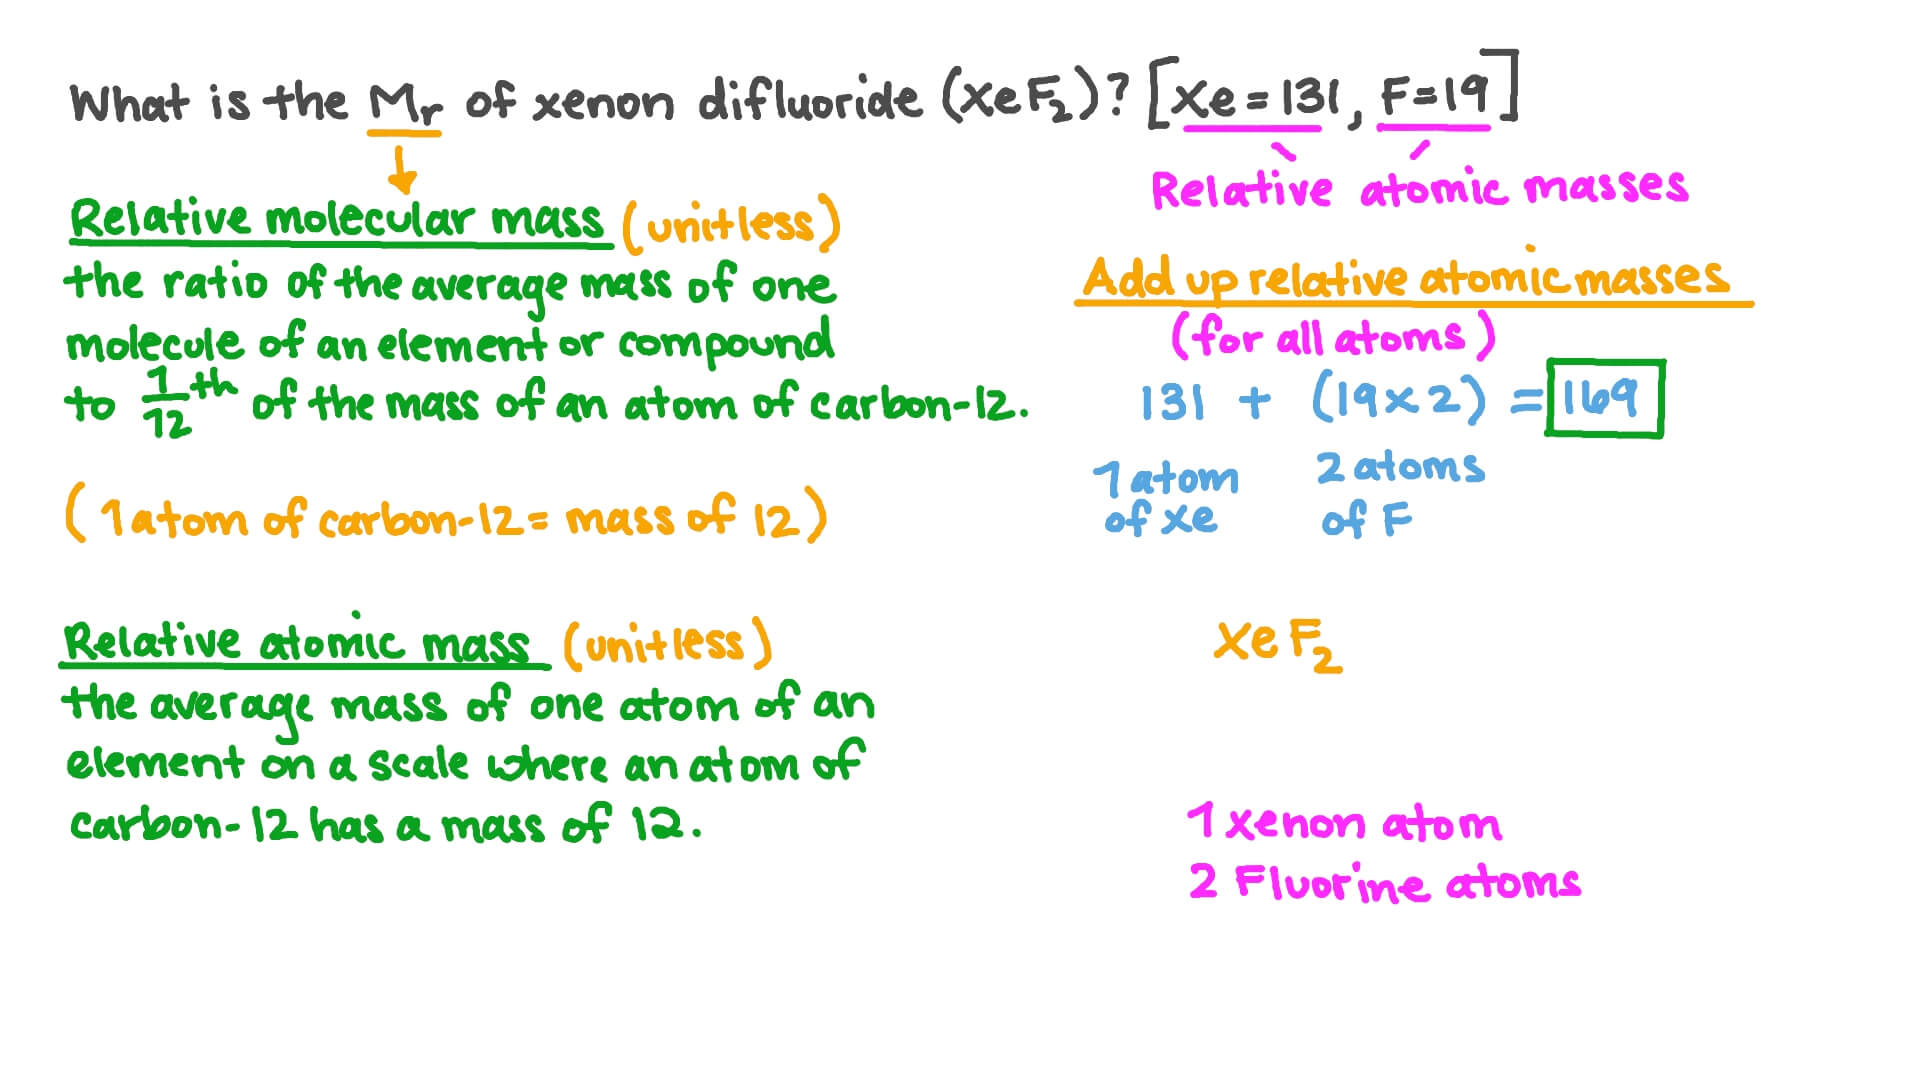 What is the Mr of xenon difluoride (XeF₂)? [Xe=131, F=19]
Relative molecular mass (unitless)
the ratio of the average mass of one
molecule of an element or compound
to 1/12 th of the mass of an atom of carbon-12.
(1 atom of carbon-12 = mass of 12)
Relative atomic mass (unitless)
the average mass of one atom of an
element on a scale where an atom of
carbon-12 has a mass of 12.
Relative atomic masses
Add up relative atomic masses
(for all atoms)
131 + (19×2) = 169
1 atom of Xe
2 atoms of F
XeF₂
1 xenon atom
2 Fluorine atoms